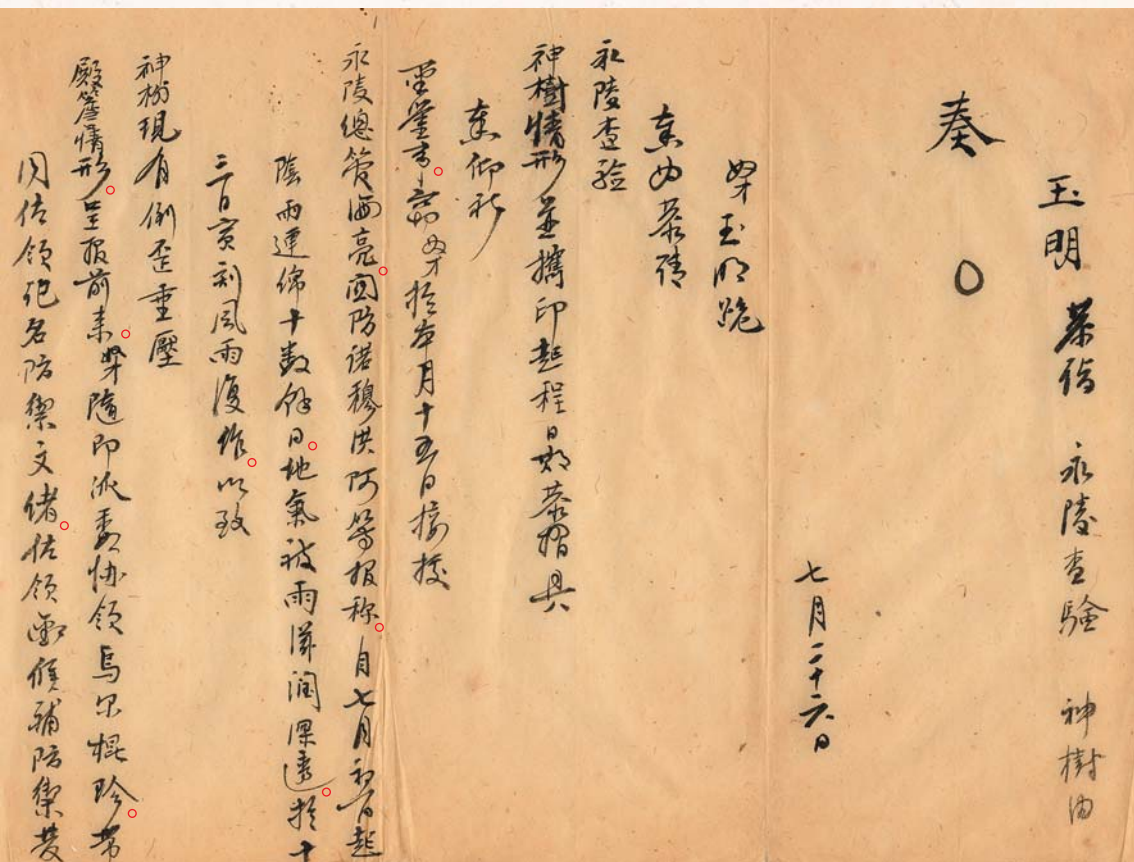 玉明 恭偹 永陵查驗 神樹由
奏
七月二十六日
奴才玉明跪
奏為恭請
永陵查驗
神樹情形並攜印起程日期恭摺具
奏仰祈
聖鑒事竊奴才於本月十五日接授
永陵總管海亮關防諾穆洪阿等報称自七月初一日起
陰雨連綿十數餘日地氣被雨滋潤深透於十
三日寅刻風雨復作以致
神樹現有倒歪重壓
殿簷情形呈報前來奴才隨即派委協領烏尔棍珍帶
同佐領 名防禦文緒佐領 候補防禦